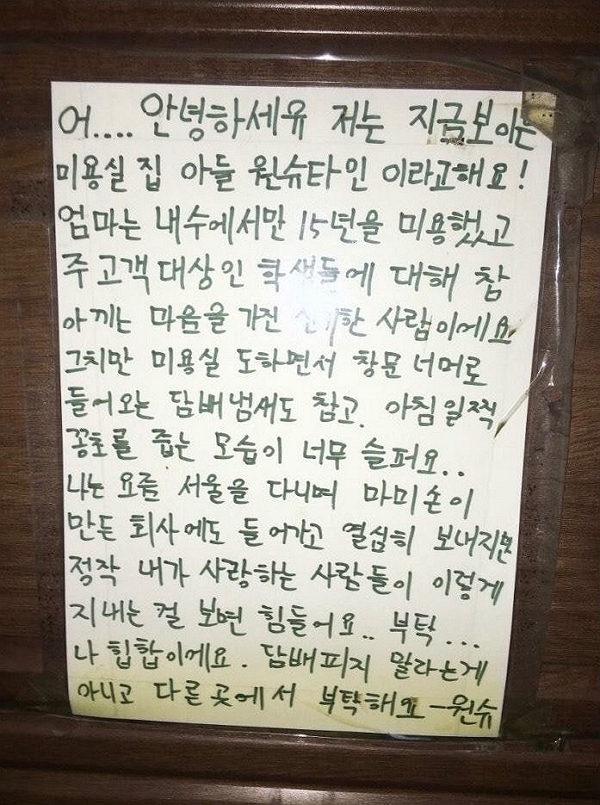 어.... 안녕하세유 저는 지금보이는
미용실 집 아들 원슈타인 이라고해요!
엄마는 내수에서만 15년을 미용했고
주 고객 대상인 학생들에 대해 참
아끼는 마음을 가진 신기한 사람이에요
그치만 미용실 도하면서 창문 너머로
들어오는 담배냄새도 참고. 아침 일찍
꽁초를 줍는 모습이 너무 슬퍼요..
나는 요즘 서울을 다니며 마미손이
만든 회사에도 들어가고 열심히 보내지만
정작 내가 사랑하는 사람들이 이렇게
지내는 걸 보면 힘들어요.. 부탁...
나 힙합이에요. 담배피지 말라는게
아니고 다른 곳에서 부탁해요 -원슈